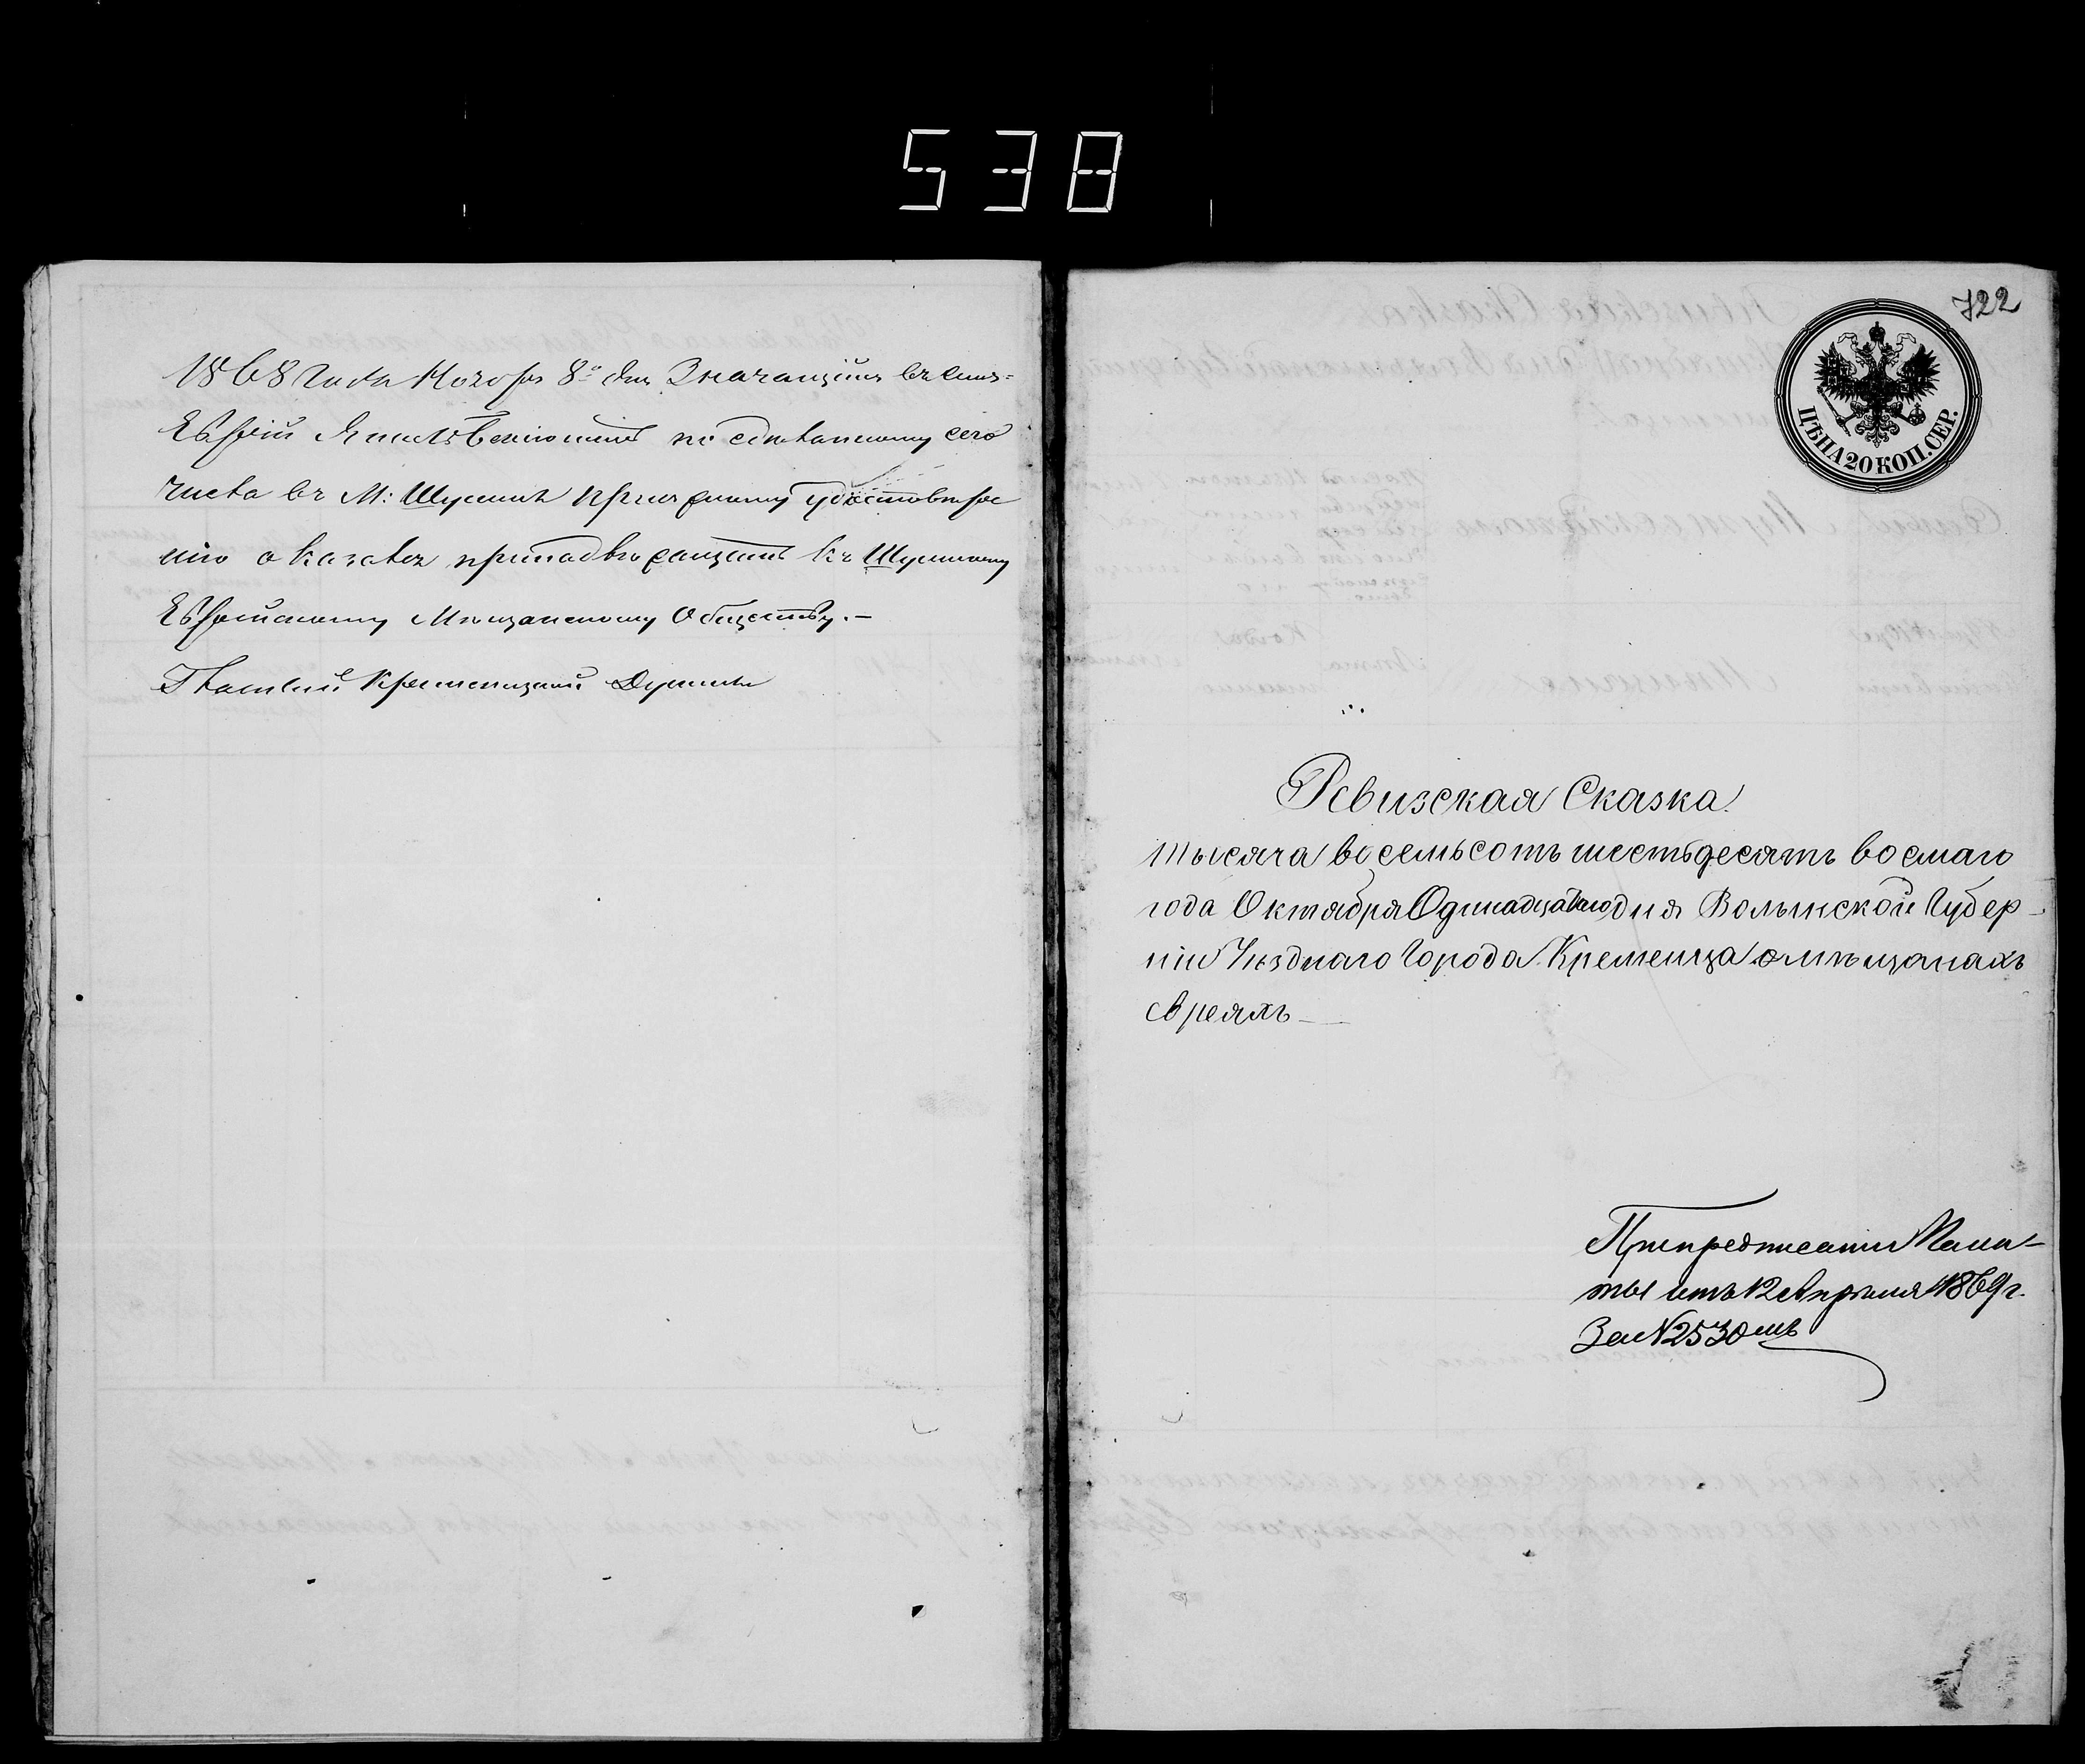 538
1868 года Ноября 8го дня Значащийся въ сихъ
Еврей действительно по сделанному сего
числа въ М: Шумске присяжному удостовѣре
нію оказался принадлежащимъ къ Шумскому
Еврейскому Мѣщанскому Обществу.—
Гласный Кременецкой Думы
722
ЦѢНА 20 КОП. СЕР.
Ревизская Сказка
тысяча восемьсотъ шестьдесятъ восмаго
года Октября Одинадцатаго дня Волынской Губер-
ніи Уѣзднаго Города Кременца о мѣщанахъ
евреяхъ—
При предписаніи Пала-
ты отъ 12 Апрѣля 1869 г.
За № 2530мъ